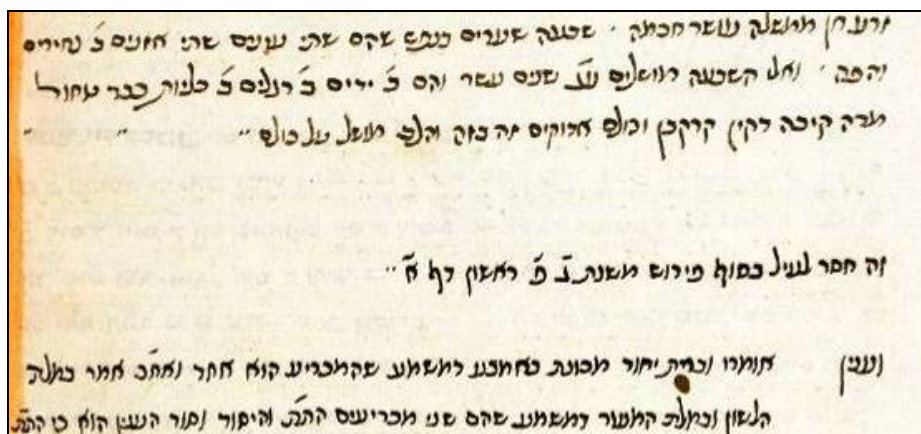 זרע חן ממשלה עושר חכמה · שבעה שערים בנפש שהם שתי עינים שתי אזנים ב' נחירים
והפה · ואל השבעה מושלים על שנים עשר והם ב' ידים ב' רגלים ב' כליות כבד טחול
מרה קיבה דקין קרקבן וכולם אדוקים זה בזה והלב מושל על כולם
זה חסר לעיל בסוף פירוש משנת ג' פ' ראשון דף א'
וענין אומרו וברית יחוד מכוונת באמצע דמשמע שהמכריע הוא אחד ואח"כ אמר במלת
הלשון ובמלת המעור דמשמע שהם שני מכריעים התת והיסוד וסוד הענין הוא כי התת